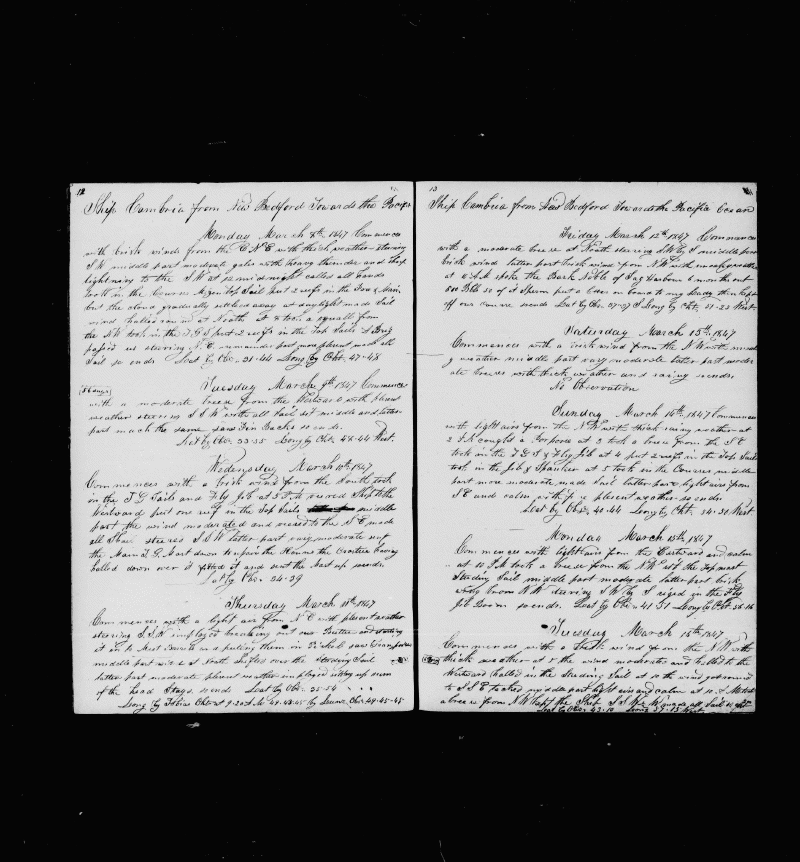 12
Ship Cambria from New Bedford Towards the Pacific
Monday March 8th 1847 Commences
with brisk winds from the E N E with thick weather stearing
S W middle part moderate gales with heavy thunder and sharp
lightning to the S W at 12 midnight called all hands
took in the Courses Mizen top Sail put 2 reefs in the Fore & Main
but the cloud gradually settled away at daylight made Sail
wind hailed round at North at 8 took a squall from
the N W took in the T G S put 2 reefs in the Top Sails A Brig
passed us stearing N E remainder part more plesent made all
Sail so ends Lat by Obs 31-44 Long by Cht 47-48
Tuesday March 9th 1847 Commences
with a moderate breese from the Westward with plesent
weather stearing S S W with all Sail set middle and latter
part much the same so ends
Lat by Obs 33-35 Long by Cht 48-46 West
Wednesday March 10th 1847
Commences with a brisk wind from the South took
in the T G Sails and Fly Jib at 3 P M veered Ship to the
Westward put one reef in the Top Sails middle
part the wind moderated and veered to the S E made
all Sail steered S S W latter part very moderate sent
the Main T G Mast down to repair the the Crostree having
bolted down over it fitted it and sent the Mast up so ends
Lat by Obs 34-39
Thursday March 11th 1847
Commences with a light air from N E with plesent weather
stearing S S W imployed breaking out our and stowing
it in to Mast putting them in Pickel saw Grampuses
middle part wind at North shifted over the Steerding Sail
latter part moderate plesent weather imployed setting up some
of the head Stays so ends Lat by Obs 35-54
Long by Cht at 9-20 A M 49-43-45 by Cht 49-45-45
13
Ship Cambria from New Bedford Towards the Pacific Ocean
Friday March 12th 1847 Commences
with a moderate breese at North stearing S W by S middle part
brisk wind latter part brisk wind from N W with smooth weather
at 11 A M spoke the Bark Noble of Sag Harbour 6 months out
800 Bbls 50 of it Sperm put a on board my then kept
off our course so ends Lat by Obs 37-37 S Long by Cht 51-23 West
Saturday March 13th 1847
Commences with a brisk wind from the N W with
weather middle part very moderate latter part moder
ate breese with thick weather and so ends
No Observation
Sunday March 14th 1847 Commences
with light airs from the N W with thick weather at
2 P M caught a Porpoise at 3 took a breese from the S E
took in the T G S & Fly Jib at 4 put 2 reefs in the Top Sails
took in the Jib & Spanker at 5 took in the Courses middle
part more moderate made Sail latter part light airs from
S E and calm with plesent weather so ends
Lat by Obs 40-44 Long by Cht 54-30 West
Monday March 15th 1847
Commences with light airs from the Eastward and calm
at 10 P M took a breese from the N W Set the Top mast
Steerding Sail middle part moderate latter part brisk
wind from N W stearing S W by S the Fly
Jib Boom so ends Lat by Obs 41-51 Long by Cht 56-16
Tuesday March 16th 1847
Commences with a brisk wind from the N W with
thick weather at 8 the wind moderated and hailed to the
Westward hailed in the Steerding Sail at 10 the wind
to S S E tacked middle part light airs and calm at 10 A M took
a breese from N W kept the Ship S S W & W made all Sail
Lat by Obs 42-10 Long 57-15 West